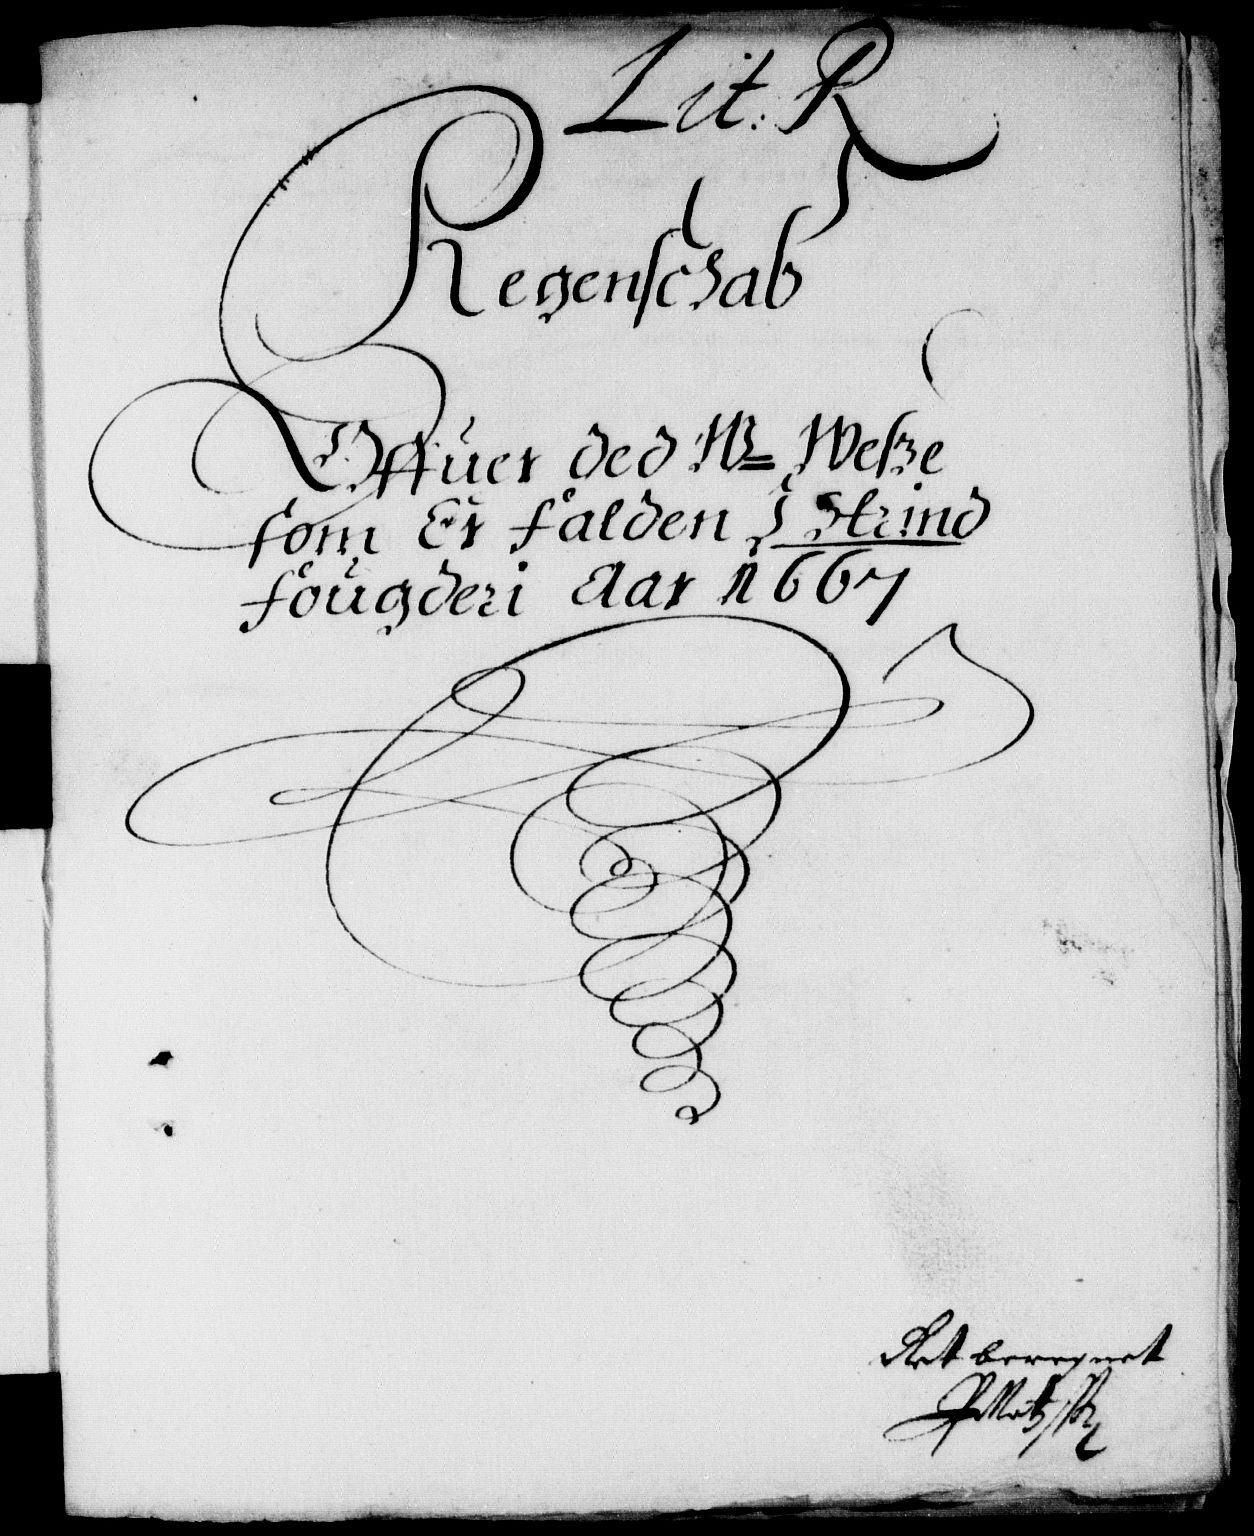 Lit: R
Regenschab
Offuer ded
som Er falden I Strind
fougderi Aar 1667
Ret beregnet